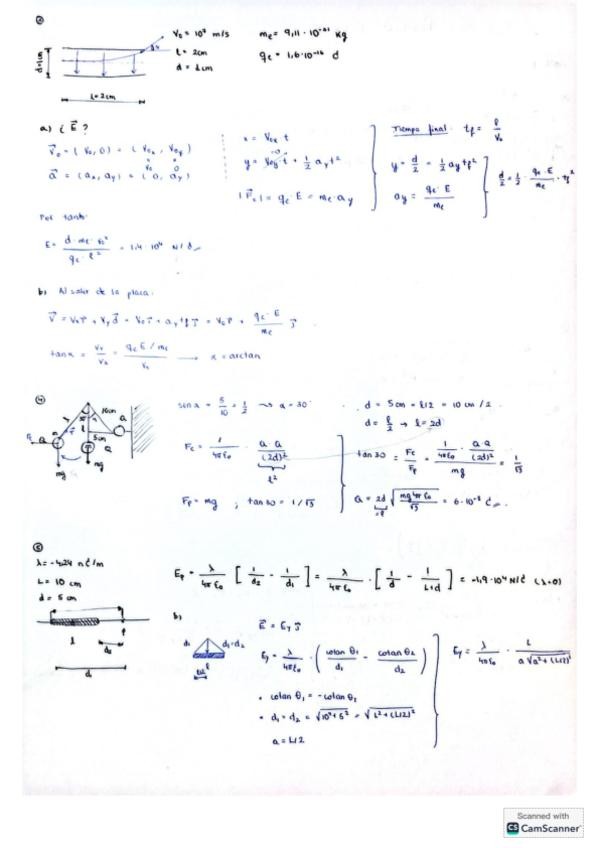 ②
V₀ = 10⁷ m/s    mₑ = 9,11 · 10⁻³¹ kg
l = 2cm    qₑ = 1,6·10⁻¹⁹ C
d = 1cm
d=1cm
L=2cm
a) ¿ E⃗ ?
V⃗₀ = (V₀, 0) = (V₀ₓ, V₀ᵧ)
a⃗ = (aₓ, aᵧ) = (0, aᵧ)
x = V₀ₓ t
y = V₀ᵧ t + 1/2 aᵧ t²
|F⃗ₑ| = qₑ · E = mₑ · aᵧ
Tiempo final: t_f = l/V₀
y = d/2 = 1/2 aᵧ t_f²
aᵧ = qₑ · E / mₑ
d/2 = 1/2 · qₑ · E / mₑ · t_f²
Por tanto:
E = d · mₑ · V₀² / qₑ · l² = 1,4 · 10⁴ N/C
b) Al salir de la placa:
V⃗ = Vₓ i⃗ + Vᵧ j⃗ = V₀ i⃗ + aᵧ t_f j⃗ = V₀ i⃗ + qₑ · E / mₑ j⃗
tan α = Vᵧ/Vₓ = qₑ E / mₑ / V₀ → α = arctan
④
10cm
5cm
Q
mg
mg
sen α = 5/10 = 1/2 → α = 30°
d = 5cm = l/2 = 10 cm / 2
d = l/2 → l = 2d
F_c = 1/4πε₀ · Q · Q / (2d)²
l²
F_p = mg ; tan 30 = 1/√3
tan 30 = F_c/F_p = 1/4πε₀ · Q Q/(2d)² / mg = 1/√3
Q = 2d √(mg 4π ε₀/√3) = 6·10⁻⁸ C
=l
⑤
λ = -4,24 nC/m
L = 10 cm
d = 5 cm
l
P
d₂
d₁
E_p = λ/4πε₀ [1/d₂ - 1/d₁] = λ/4πε₀ · [1/d - 1/L+d] = -1,9·10⁴ N/C (λ<0)
b)
d₁    d₁=d₂
L/2
E⃗ = Eᵧ j⃗
Eᵧ = λ/4πε₀ · (cotan θ₁/d₁ - cotan θ₂/d₂)
Eᵧ = λ/4πε₀ · L / a√(a²+(L/2)²)
• cotan θ₁ = -cotan θ₂
• d₁ = d₂ = √(10²+5²) = √(L²+(L/2)²)
a = L/2
Scanned with
CS CamScanner